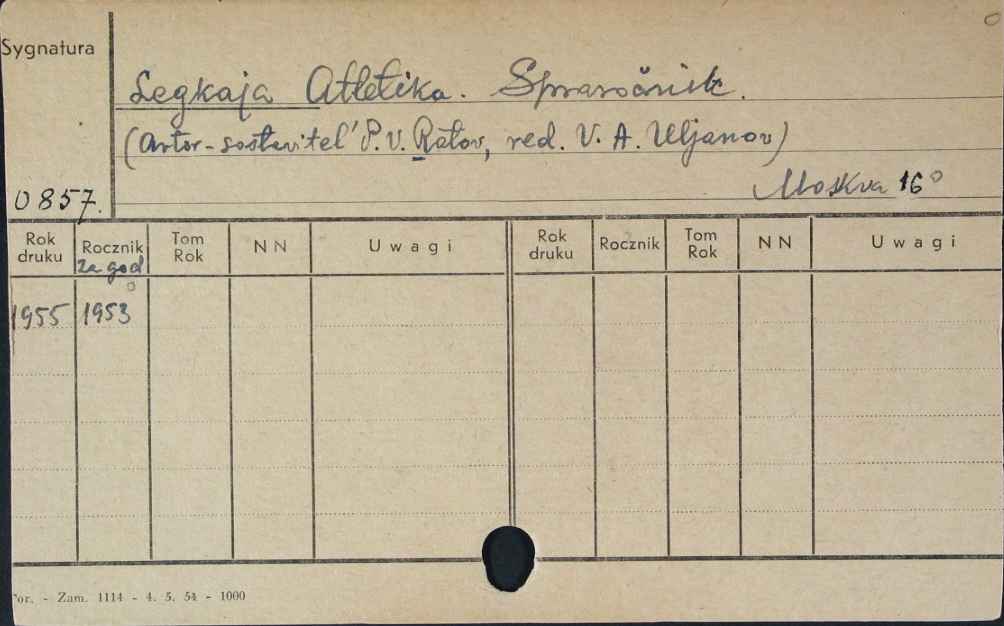 Sygnatura
Legkaja Atletika. Spravočnik.
(Avtor-sostavitel' P.V. Ratov, red. V. A. Uljanov)
Moskva 16°
0857.
Rok druku Rocznik za god Tom Rok N N Uwagi Rok druku Rocznik Tom Rok N N Uwagi
1955 1953
or. - Zam. 1114 - 4. 5. 54 - 1000